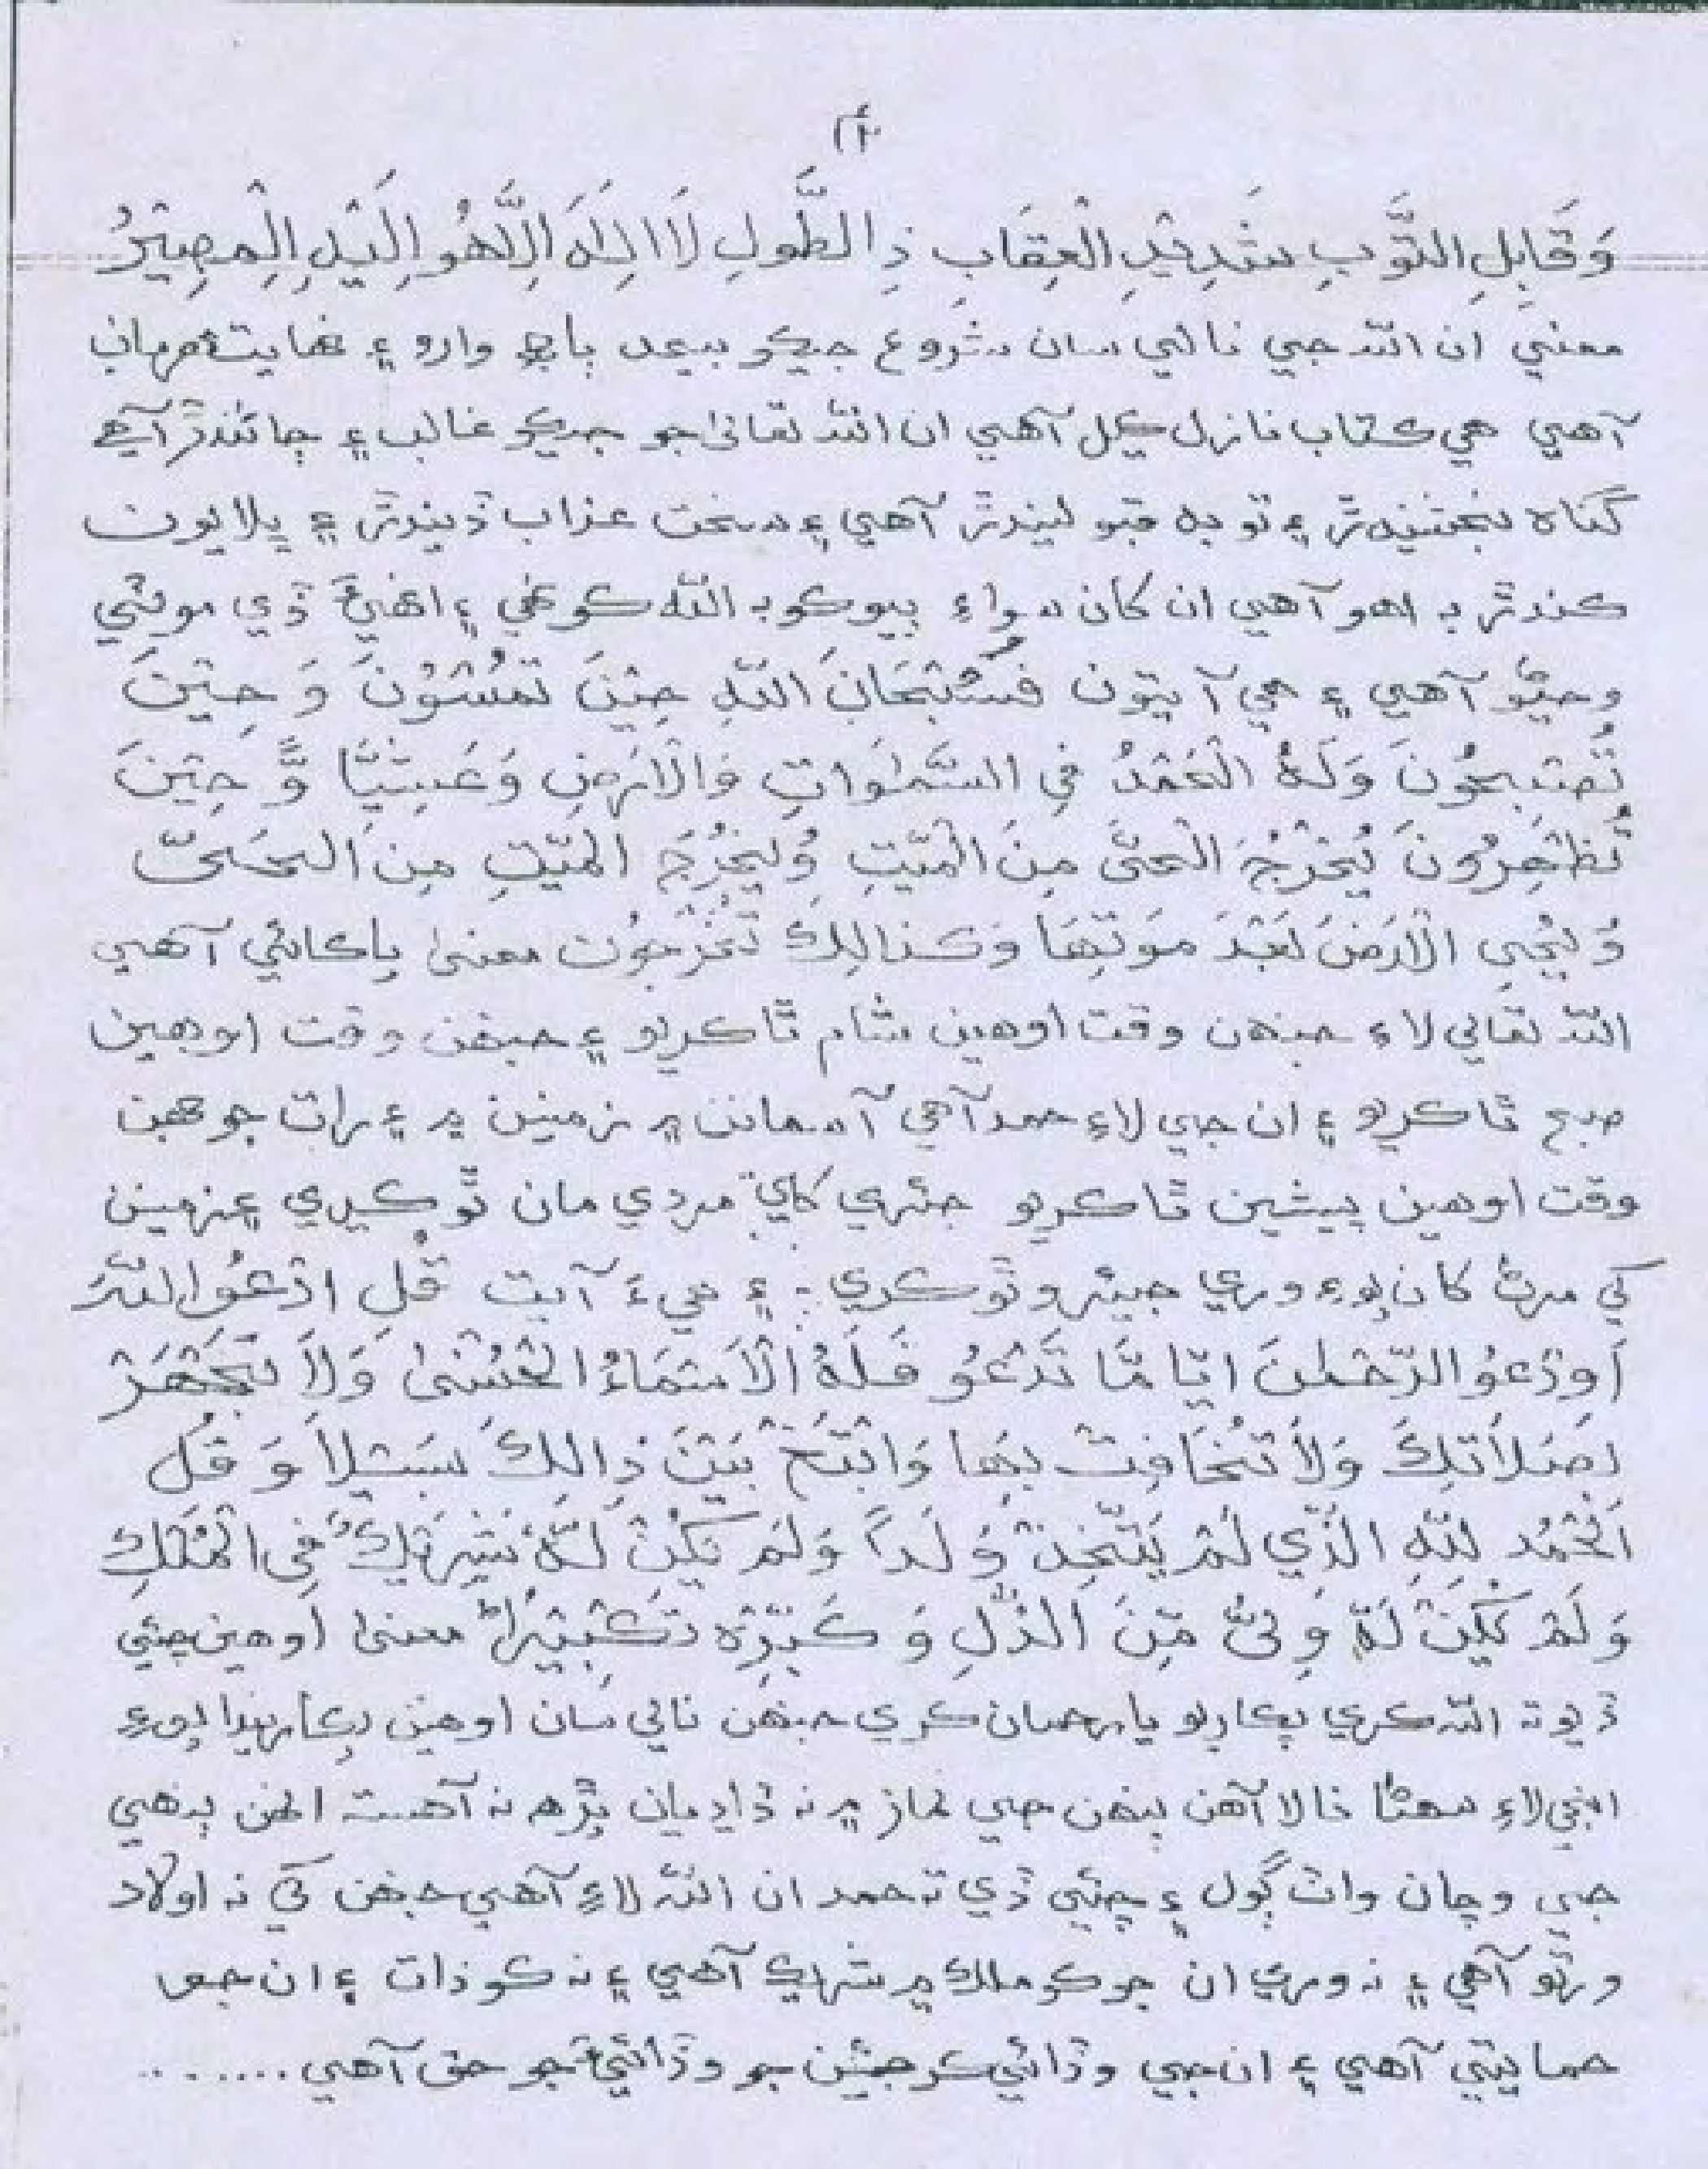 وَقَابِلِ التَّوْبِ شَدِيْدِ الْعِقَابِ ذِا الطَّولِ لَاا اِلٰهَ اِلَّا هُوَ اِلَيْهِ الْمَصِيْرُ
معنيٰ ان الله جي نالي سان شروع جيڪو بيحد ٻاجھ وارو ۽ نهايت مهربان
آهي هي ڪتاب نازل ڪيل آهي ان الله تعاليٰ جو جيڪو غالب ۽ ڄاڻندڙ آهي
گناه بخشيندڙ ۽ توبه قبوليندڙ آهي ۽ سخت عذاب ڏيندڙ ۽ ڀلايون
ڪندڙ به اهو آهي ان کان سواءِ ٻيو ڪو به الله ڪونهي ۽ انهيءَ ڏي موٽي
وڃڻو آهي ۽ هي آيتون فَسُبْحَانَ اللهِ حِيْنَ تُمْسُوْنَ وَ حِيْنَ
تُصْبِحُوْنَ وَلَهُ الْحَمْدُ فِي السَّمٰوَاتِ وَالْاَرْضِ وَعَشِيًّا وَّ حِيْنَ
تُظْهِرُوْنَ يُخْرِجُ الْحَيَّ مِنَ الْمَيِّتِ وَيُخْرِجُ الْمَيِّتِ مِنَ الْحَيِّ
وَيُحْيِ الْاَرْضَ بَعْدَ مَوْتِهَا وَكَذَالِكَ تُخْرَجُوْنَ معنيٰ پاڪائي آهي
الله تعاليٰ لاءِ جنهن وقت اوهين شام ٿا ڪريو ۽ جنهن وقت اوهين
صبح ٿا ڪريو ۽ ان جي لاءِ حمد آهي آسمانن ۾ زمينن ۾ ۽ رات جو جنهن
وقت اوهين پيشين ٿا ڪريو جيئري کي مردي مان ٿو ڪڍي ۽ زمين
کي مرڻ کان پوءِ وري جيئرو ٿو ڪري. ۽ هيءَ آيت قُلِ ادْعُوا اللهَ
اَوِدْعُوْا الرَّحْمٰنَ اَيًّا مَّا تَدْعُو فَلَهُ الْاَسْمَاءُ الْحُسْنٰى وَلَا تَجْهَرْ
بِصَلَاتِكَ وَلَا تُخَافِتْ بِهَا وَابْتَغِ بَيْنَ ذَالِكَ سَبِيْلاً وَ قُلِ
الْحَمْدُ لِلّٰهِ الَّذِي لَمْ يَتَّخِذْ وَلَداً وَلَمْ يَكُنْ لَّهُ شَرِيْكٌ فِي الْمُلْكِ
وَلَمْ يَكُنْ لَهُ وَلِيٌّ مِّنَ الذُّلِ وَ كَبِّرْهُ تَكْبِيْرًا معنيٰ اوهين چئي
ڏيو ته الله ڪري پڪاريو يا رحمان ڪري جنهن نالي سان اوهين پڪاريندا پوءِ
انجي لاءِ سهڻا نالا آهن پنهن جي نماز ۾ نه ڏاڍيان پڙھ نه آهسته انهن ٻنهي
جي وچان واٽ ڳول ۽ چئي ڏي ته حمد ان الله لاءِ آهي جنهن کي نه اولاد
ورتو آهي ۽ نه وري ان جو ڪو ملڪ ۾ شريڪ آهي ۽ نه ڪو ذات ۽ ان جو
حمايتي آهي ۽ ان جي وڏائي ڪر جيئن جو وڏائيءَ جو حق آهي .......